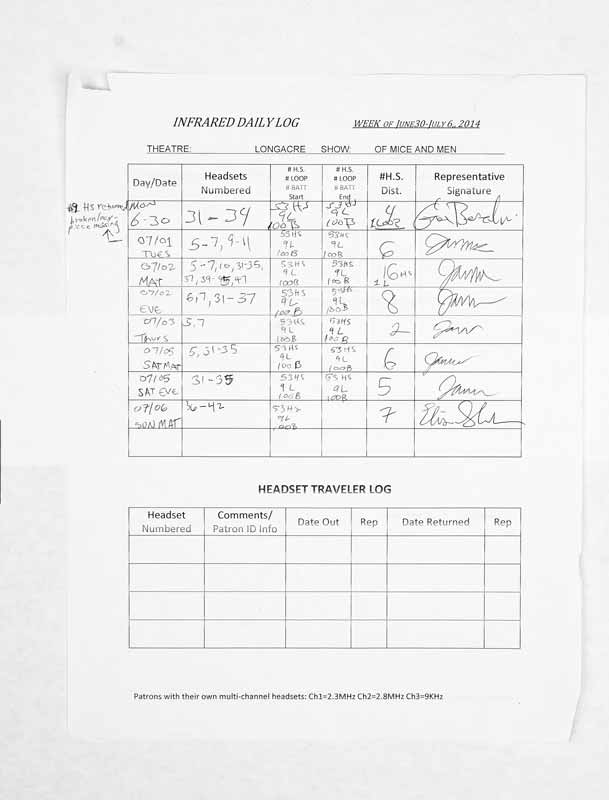 INFRARED DAILY LOG WEEK OF JUNE30-JULY 6, 2014
THEATRE: LONGACRE SHOW: OF MICE AND MEN
Day/Date Headsets Numbered # H.S. # LOOP # BATT Start # H.S. # LOOP # BATT End #H.S. Dist. Representative Signature
#9 HS returned
broken/
piece missing
MON 6-30 31-34 53HS 9L 100B 53HS 9L 100B 4
07/01 TUES 5-7, 9-11 53HS 9L 100B 53HS 9L 100B 6
07/02 MAT 5-7,10,31-35, 37,39-45,47 53HS 9L 100B 53HS 9L 100B 16 HS 1L
07/02 EVE 6,7,31-37 53HS 9L 100B 53HS 9L 100B 8
07/03 THURS 5,7 53HS 9L 100B 53HS 9L 100B 2
07/05 SAT MAT 5,31-35 53HS 9L 100B 53HS 9L 100B 6
07/05 SAT EVE 31-35 53HS 9L 100B 53HS 9L 100B 5
07/06 SUN MAT 36-42 53HS 9L 100B 7
HEADSET TRAVELER LOG
Headset Numbered Comments/ Patron ID Info Date Out Rep Date Returned Rep
Patrons with their own multi-channel headsets: Ch1=2.3MHz Ch2=2.8MHz Ch3=9KHz